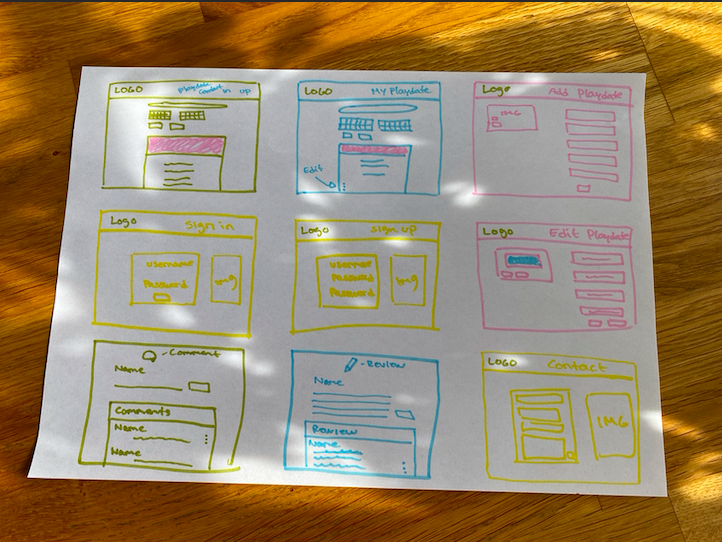 LOGO
Playdate
Contact
in up
LOGO
My Playdate
Edit
Logo
Add Playdate
IMG
Logo
Sign in
username
Password
Img
Logo
Sign up
username
Password
Password
Img
LOGO
Edit Playdate
- Comment
Name
Comments
Name
Name
- Review
Name
Review
Name
LOGO
Contact
IMG